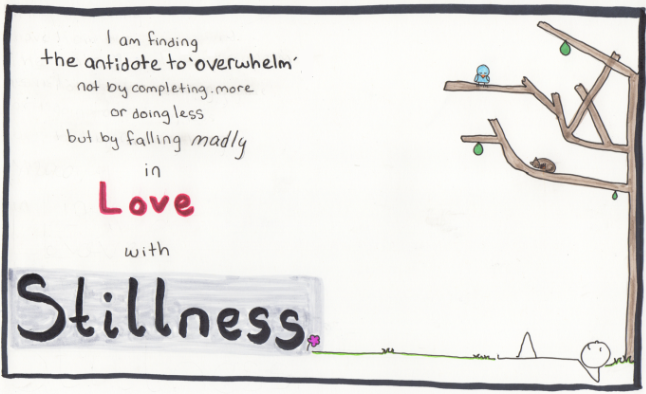 I am finding
the antidote to 'overwhelm'
not by completing more
or doing less
but by falling madly
in
Love
with
Stillness.